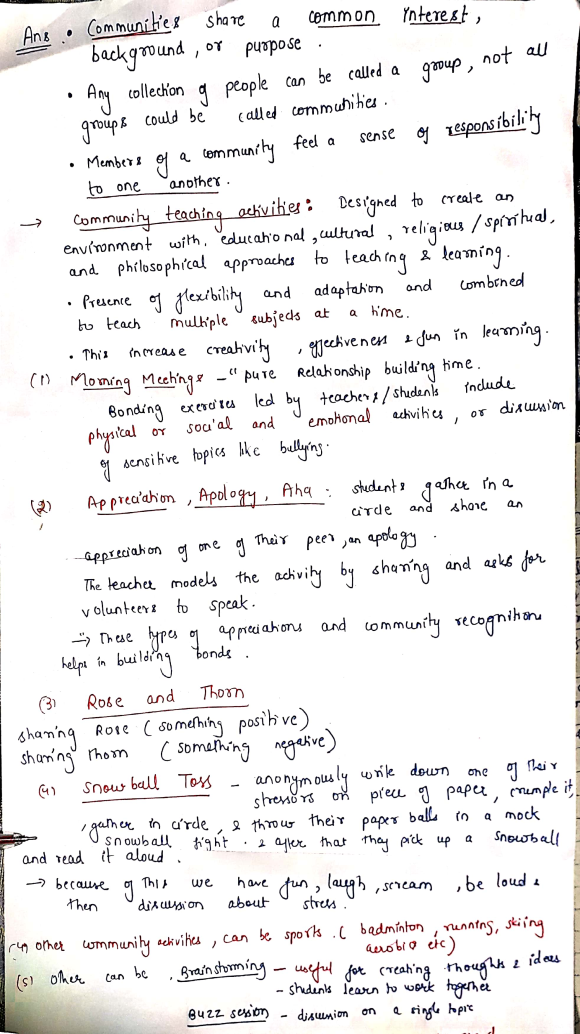 Ans. • Communities share a common interest,
background, or purpose.
• Any collection of people can be called a group, not all
groups could be called communities.
• Members of a community feel a sense of responsibility
to one another.
→ Community teaching activities: Designed to create an
environment with, educational, cultural, religious/spiritual,
and philosophical approaches to teaching & learning.
• Presence of flexibility and adaptation and combined
to teach multiple subjects at a time.
• This increase creativity, effectiveness & fun in learning.
(1) Morning Meetings - "pure Relationship building time.
Bonding exercises led by teachers/students include
physical or social and emotional activities, or discussion
of sensitive topics like bullying.
(2) Appreciation, Apology, Aha: students gather in a
circle and share an
appreciation of one of their peer, an apology.
The teacher models the activity by sharing and asks for
volunteers to speak.
→ These types of appreciations and community recognitions
helps in building bonds.
(3) Rose and Thorn
sharing Rose (something positive)
sharing Thorn (something negative)
(4) Snowball Toss - anonymously write down one of their
stressors on piece of paper, crumple it,
, gather in circle, & throw their paper balls in a mock
snowball fight. & after that they pick up a snowball
and read it aloud.
→ because of This we have fun, laugh, scream, be loud &
then discussion about stress.
(4) other community activities, can be sports. ( badminton, running, skiing
aerobic etc)
(5) Other can be, Brainstorming - useful for creating thoughts & ideas
- students learn to work together
Buzz session - discussion on a single topic